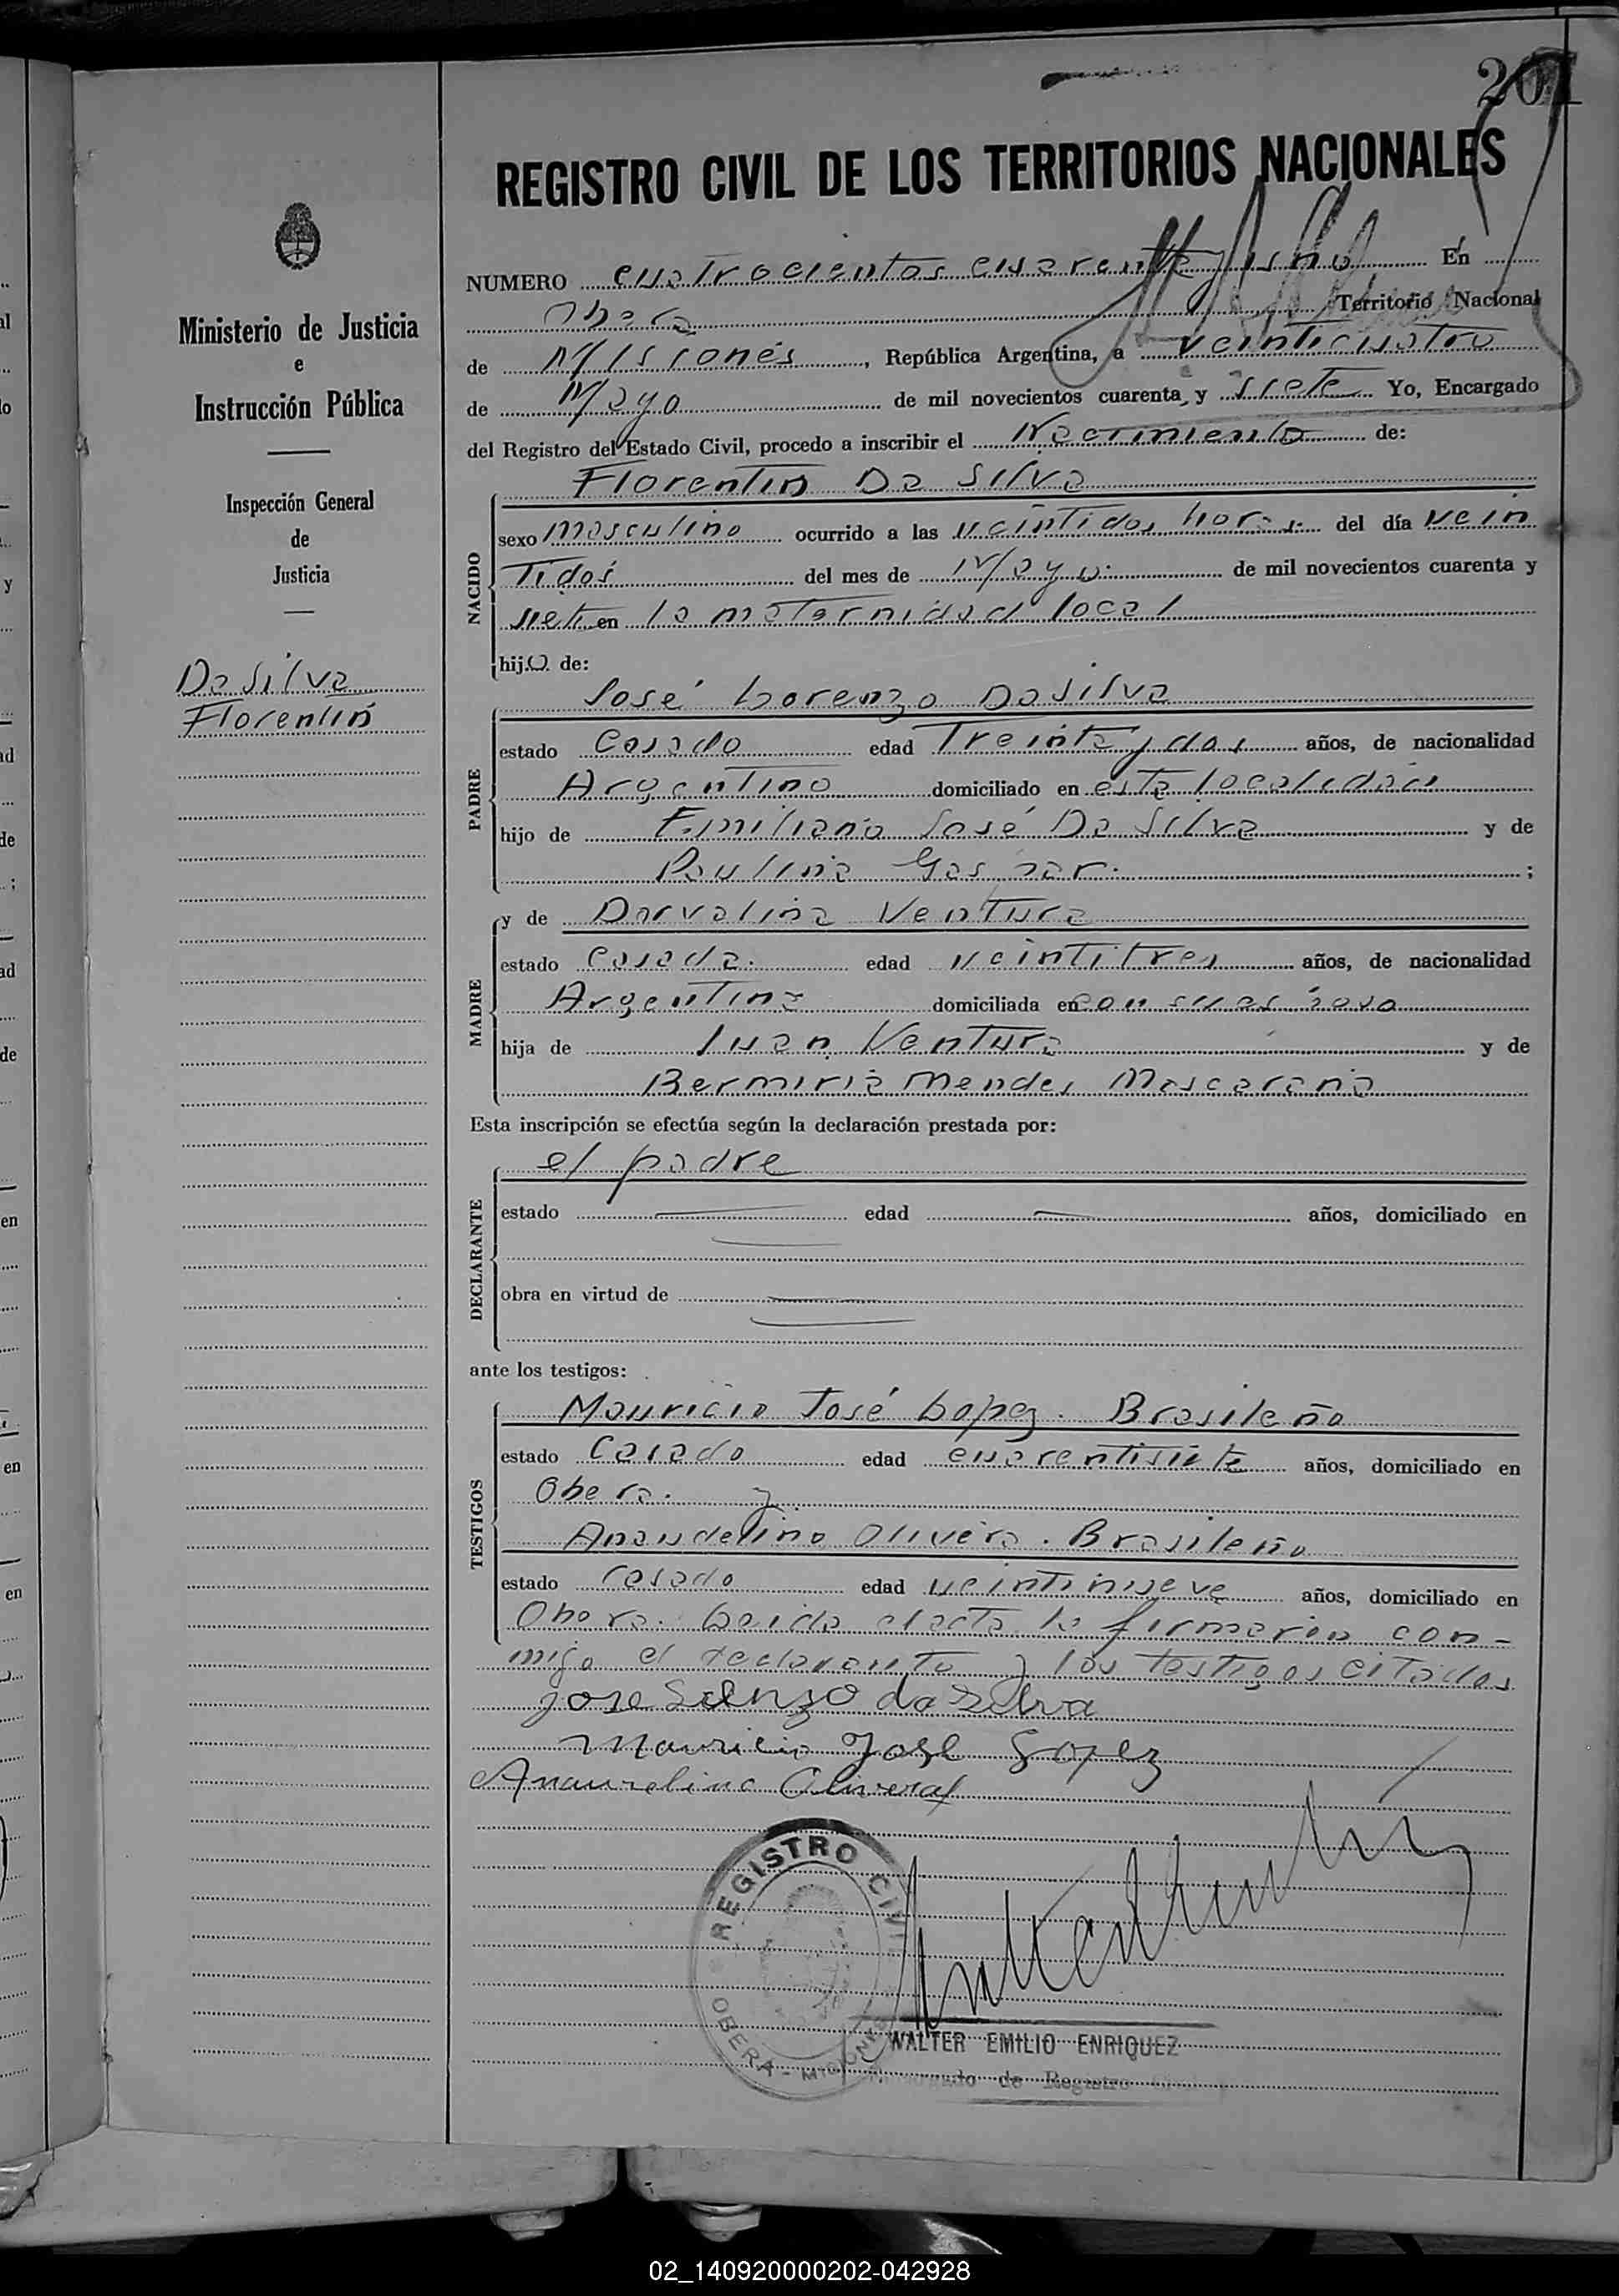 201
REGISTRO CIVIL DE LOS TERRITORIOS NACIONALES
NUMERO cuatrocientos cuarenta y En
Obera Territorio Nacional
de Misiones, República Argentina, a veinticuatro
de Mayo de mil novecientos cuarenta y siete Yo, Encargado
del Registro del Estado Civil, procedo a inscribir el Nacimiento de:
Ministerio de Justicia
e
Instrucción Pública
Inspección General
de
Justicia
Da Silva
Florentin
NACIDO
Florentin Da Silva
sexo masculino ocurrido a las veintidos horas. del día vein
tidos del mes de Mayo. de mil novecientos cuarenta y
siete en la maternidad local
hijo de:
PADRE
José Lorenzo Da Silva
estado Casado edad Treinta y dos años, de nacionalidad
Argentino domiciliado en esta localidad
hijo de Emiliano José Da Silva y de
Paulina Gaspar. ;
MADRE
y de Dorvalina Ventura
estado Casada. edad veintitres años, de nacionalidad
Argentina domiciliada en con su esposo
hija de Juan Ventura y de
Bermiria Mendes Mascaraña
Esta inscripción se efectúa según la declaración prestada por:
DECLARANTE
el padre
estado edad años, domiciliado en
obra en virtud de
ante los testigos:
TESTIGOS
Mauricio José Lopez. Brasileño
estado Casado edad cuarentisiete años, domiciliado en
Obera. y
Anaudelino Olivera. Brasileño
estado Casado edad veintinueve años, domiciliado en
Obera. Leida el acta la firmaron con-
migo el declarante y los testigos citados
Jose da Silva
Mauricio José Lopez
REGISTRO CIVIL
OBERA - MISIONES
WALTER EMILIO ENRIQUEZ
Encargado de Registro Civil
02_140920000202-042928